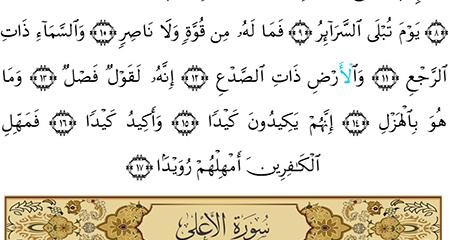 ﴿٨﴾ يَوْمَ تُبْلَى السَّرَائِرُ ﴿٩﴾ فَمَا لَهُۥ مِن قُوَّةٍ وَلَا نَاصِرٍ ﴿١٠﴾ وَالسَّمَاءِ ذَاتِ
الرَّجْعِ ﴿١١﴾ وَالْأَرْضِ ذَاتِ الصَّدْعِ ﴿١٢﴾ إِنَّهُۥ لَقَوْلٌ فَصْلٌ ﴿١٣﴾ وَمَا
هُوَ بِالْهَزْلِ ﴿١٤﴾ إِنَّهُمْ يَكِيدُونَ كَيْدًا ﴿١٥﴾ وَأَكِيدُ كَيْدًا ﴿١٦﴾ فَمَهِّلِ
الْكَٰفِرِينَ أَمْهِلْهُمْ رُوَيْدًۢا ﴿١٧﴾
سُورَةُ الْأَعْلَى